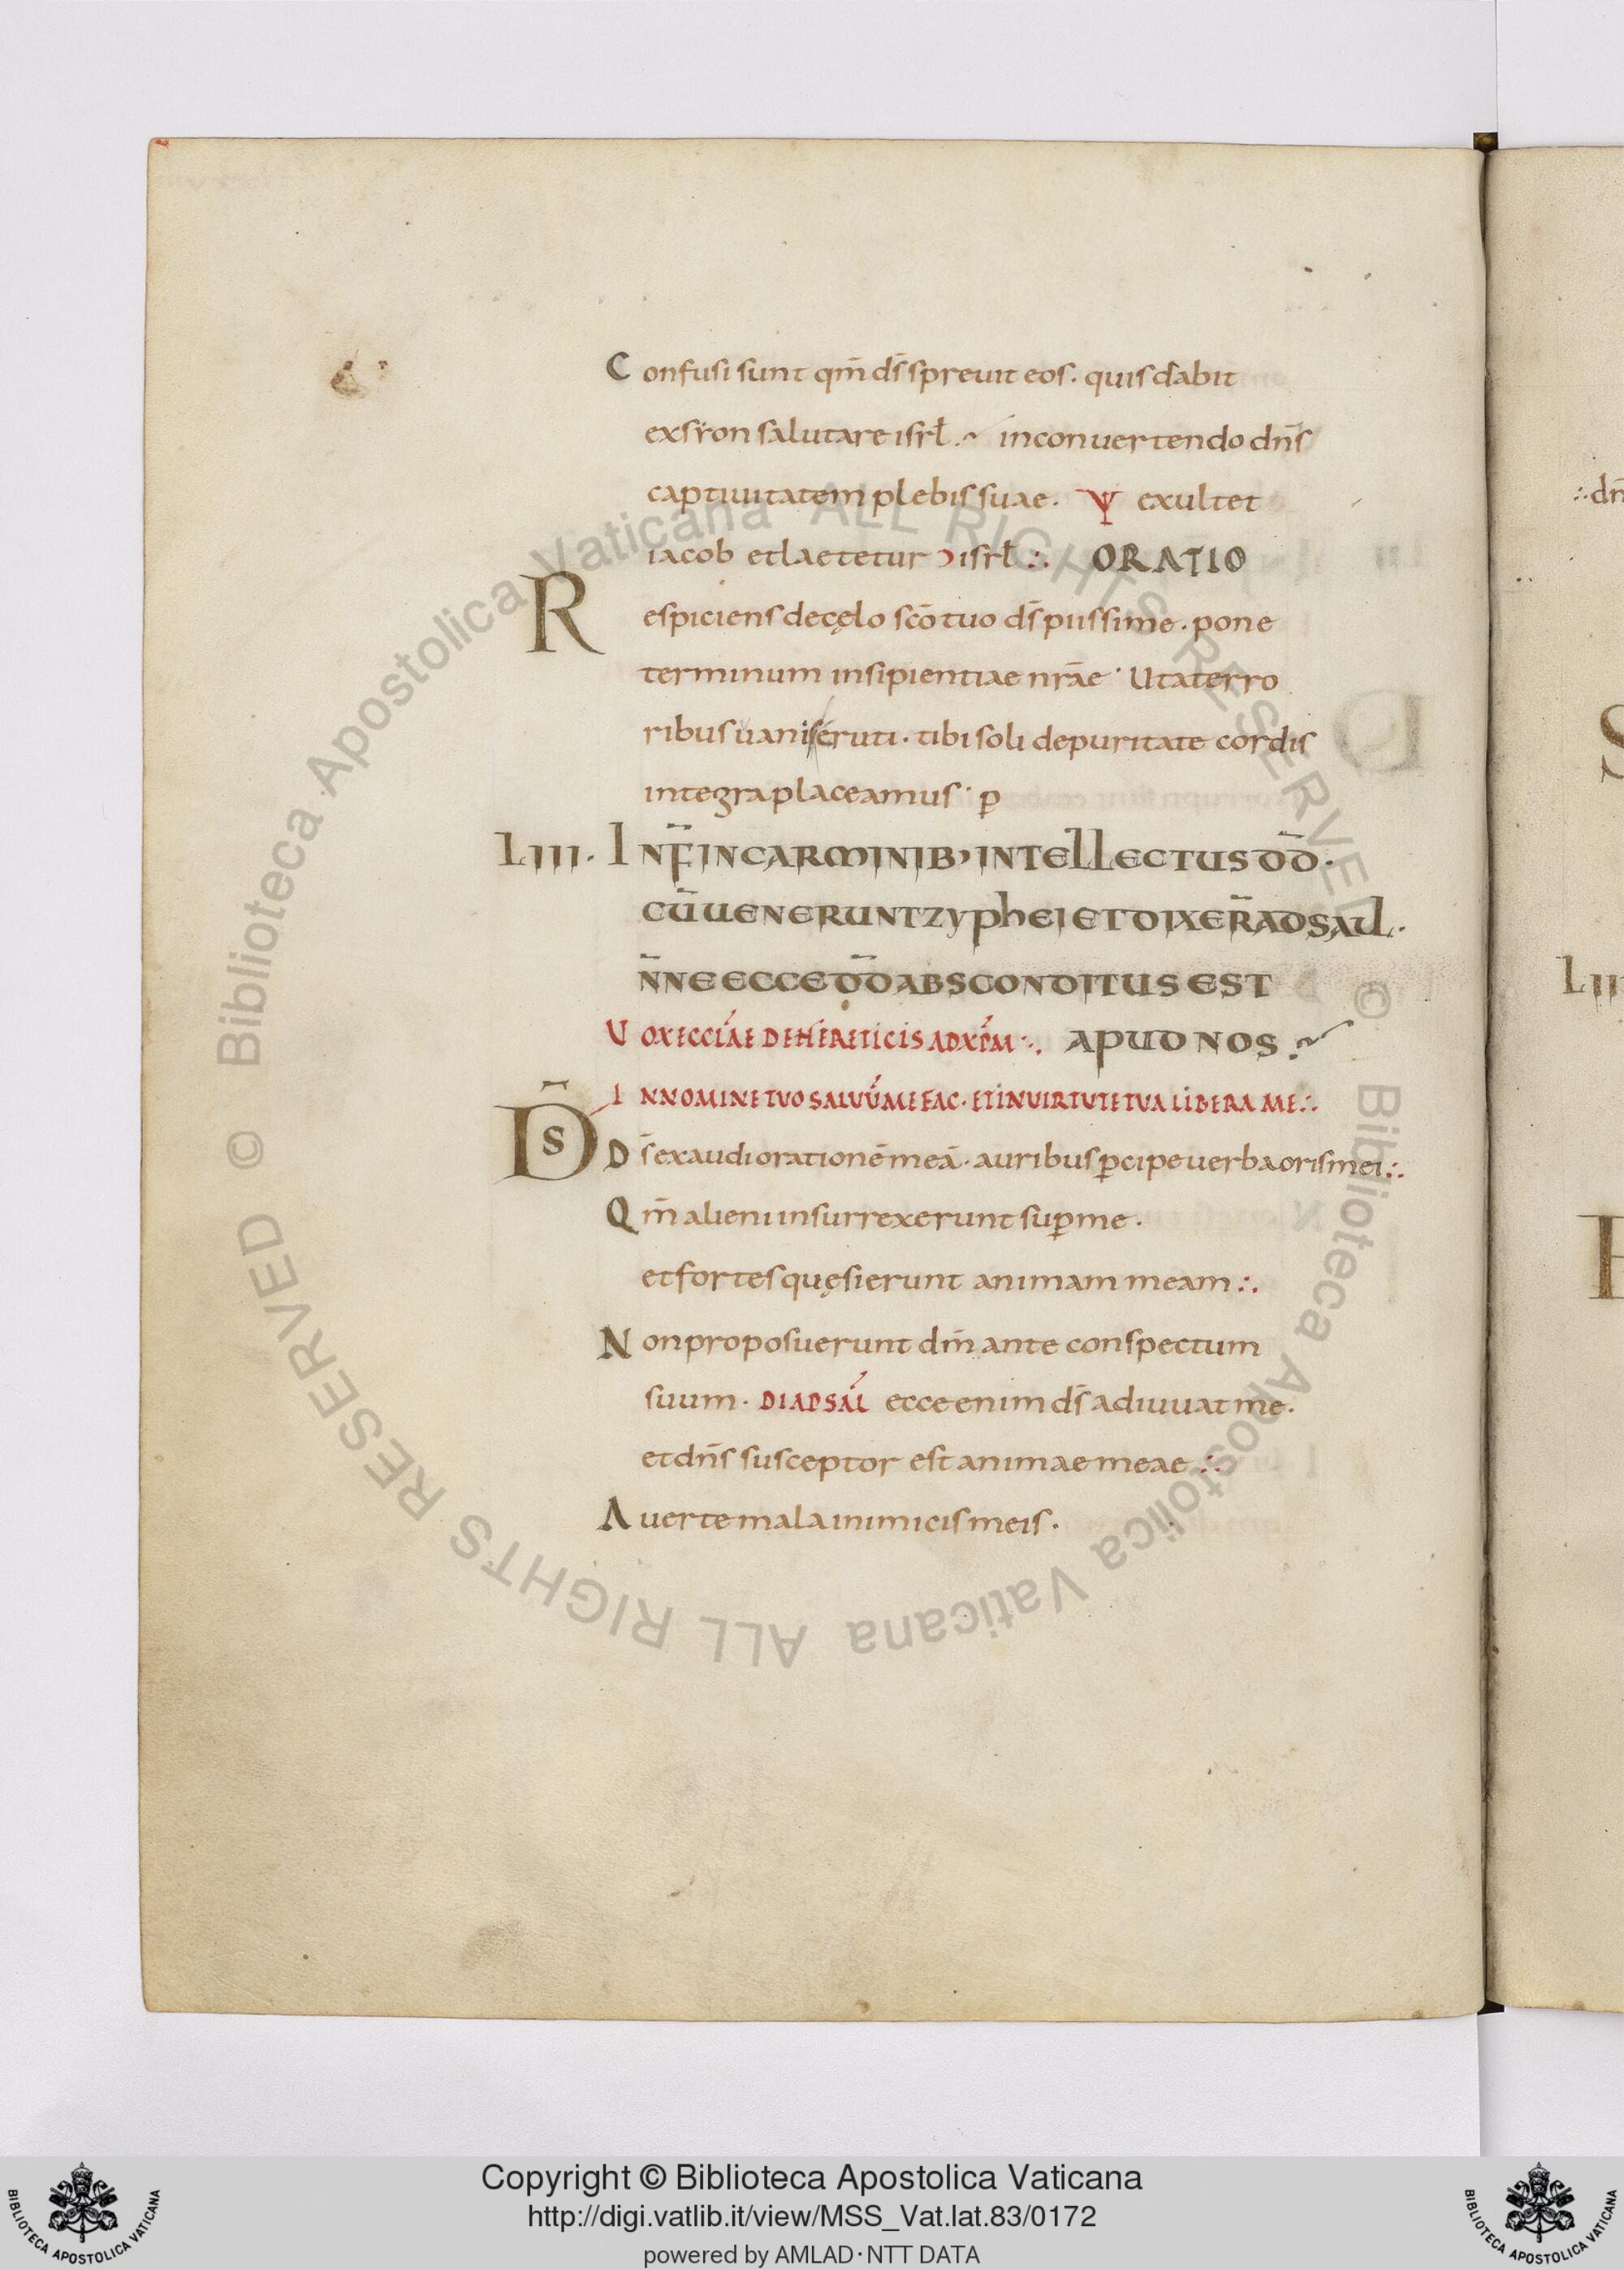 Confusi sunt qm̄ ds̄ spreuit eos. quis dabit
ex sion salutare isrł. in conuertendo dn̄s
captiuitatem plebis suae. exultet
iacob et laetetur isrł ∴ ORATIO
Respiciens de cęlo sc̄o tuo ds̄ piissime. pone
terminum insipientiae nr̄ae · Ut a terro
ribus uanis eruti. tibi soli de puritate cordis
integra placeamus · ꝑ
LIII. IN F̄ IN CARMINIB; INTELLECTUS D̄D.
CŪ UENERUNT ZYPHEI ET DIXER̄ AD SAUL.
N̄NE ECCE D̄D ABSCONDITUS EST
UOX ECCL̄AE DE HERETICIS AD XP̄M ∴ APUD NOS
D̄S IN NOMINE TUO SALUŪ ME FAC. ET IN UIRTUTE TUA LIBERA ME ∴
Ds̄ exaudi orationē meā. auribus ꝑcipe uerba oris mei ∴
Qm̄ alieni insurrexerunt suꝑ me.
et fortes quęsierunt animam meam ∴
Non proposuerunt dm̄ ante conspectum
suum. DIAPSAL̄ ecce enim ds̄ adiuuat me.
et dn̄s susceptor est animae meae ∴
Auerte mala inimicis meis.
∴ dn̄
S
LII
© Biblioteca Apostolica Vaticana ALL RIGHTS RESERVED
© Biblioteca Apostolica Vaticana ALL RIGHTS RESERVED
Copyright © Biblioteca Apostolica Vaticana
http://digi.vatlib.it/view/MSS_Vat.lat.83/0172
powered by AMLAD·NTT DATA
BIBLIOTECA APOSTOLICA VATICANA
BIBLIOTECA APOSTOLICA VATICANA